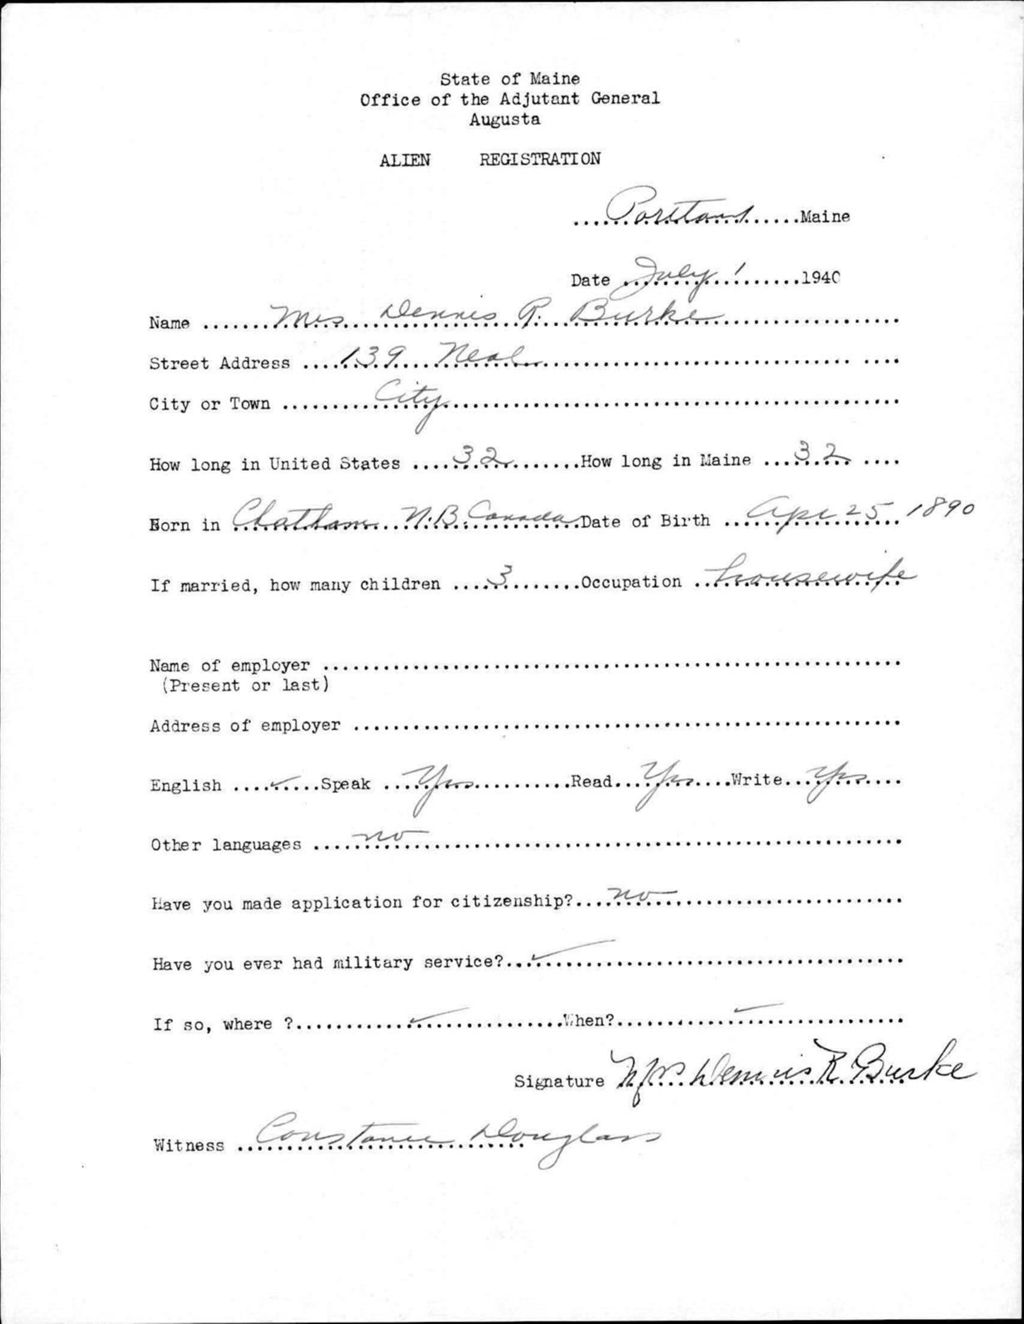 State of Maine
Office of the Adjutant General
Augusta
ALIEN REGISTRATION
Portland Maine
Date July 1 1940
Name Mrs Dennis R. Burke
Street Address 139 Neal
City or Town City
How long in United States 32 How long in Maine 32
Born in Chatham N.B. Canada Date of Birth Apr 25 1890
If married, how many children 3 Occupation housewife
Name of employer
(Present or last)
Address of employer
English Speak Yes Read Yes Write Yes
Other languages no
Have you made application for citizenship? no
Have you ever had military service?
If so, where ? When?
Signature Mrs. Dennis R. Burke
Witness Constance Douglass